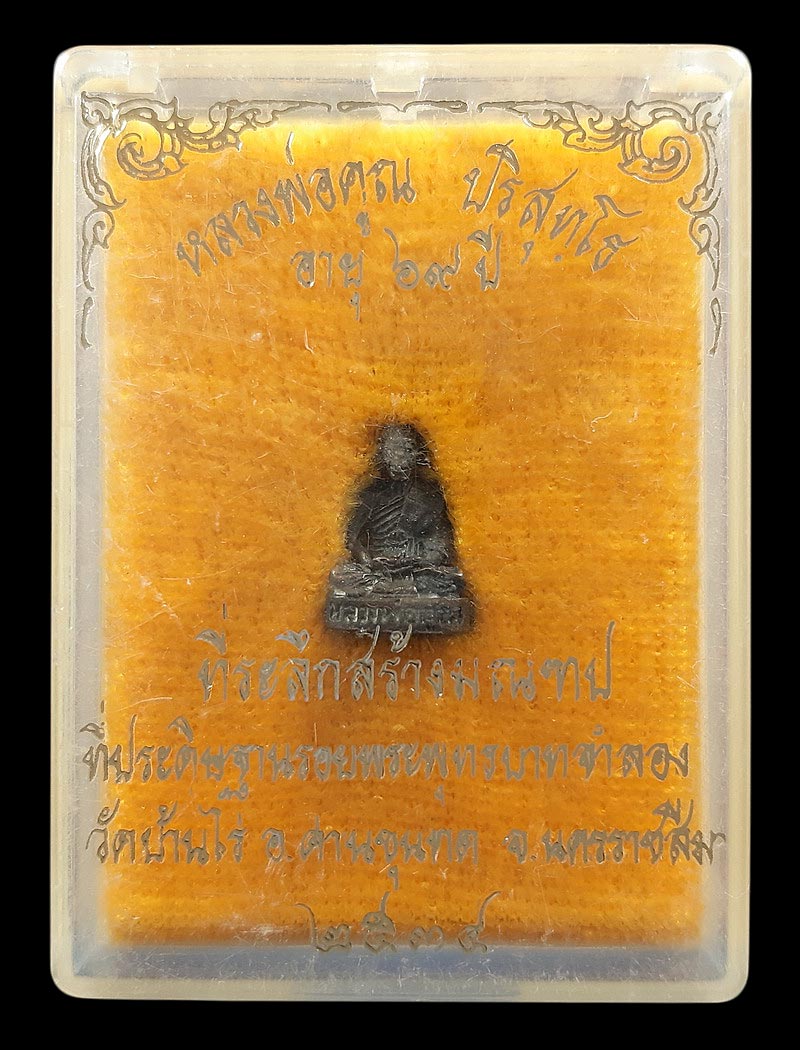 หลวงพ่อคูณ ปริสุทฺโธ
อายุ ๖๙ ปี
หลวงพ่อคูณ
ที่ระลึกสร้างมณฑป
ที่ประดิษฐานรอยพระพุทธบาทจำลอง
วัดบ้านไร่ อ.ด่านขุนทด จ.นครราชสีมา
๒๕๓๔